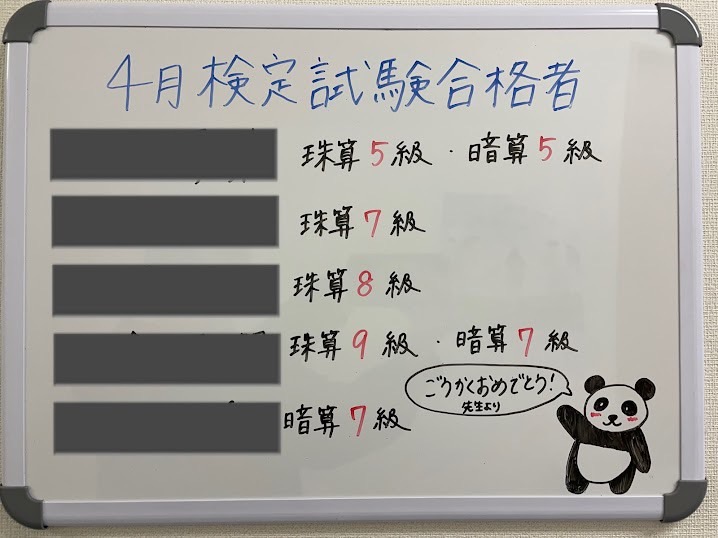 4月検定試験合格者
珠算5級・暗算5級
珠算7級
珠算8級
珠算9級・暗算7級
暗算7級
ごうかくおめでとう!
先生より